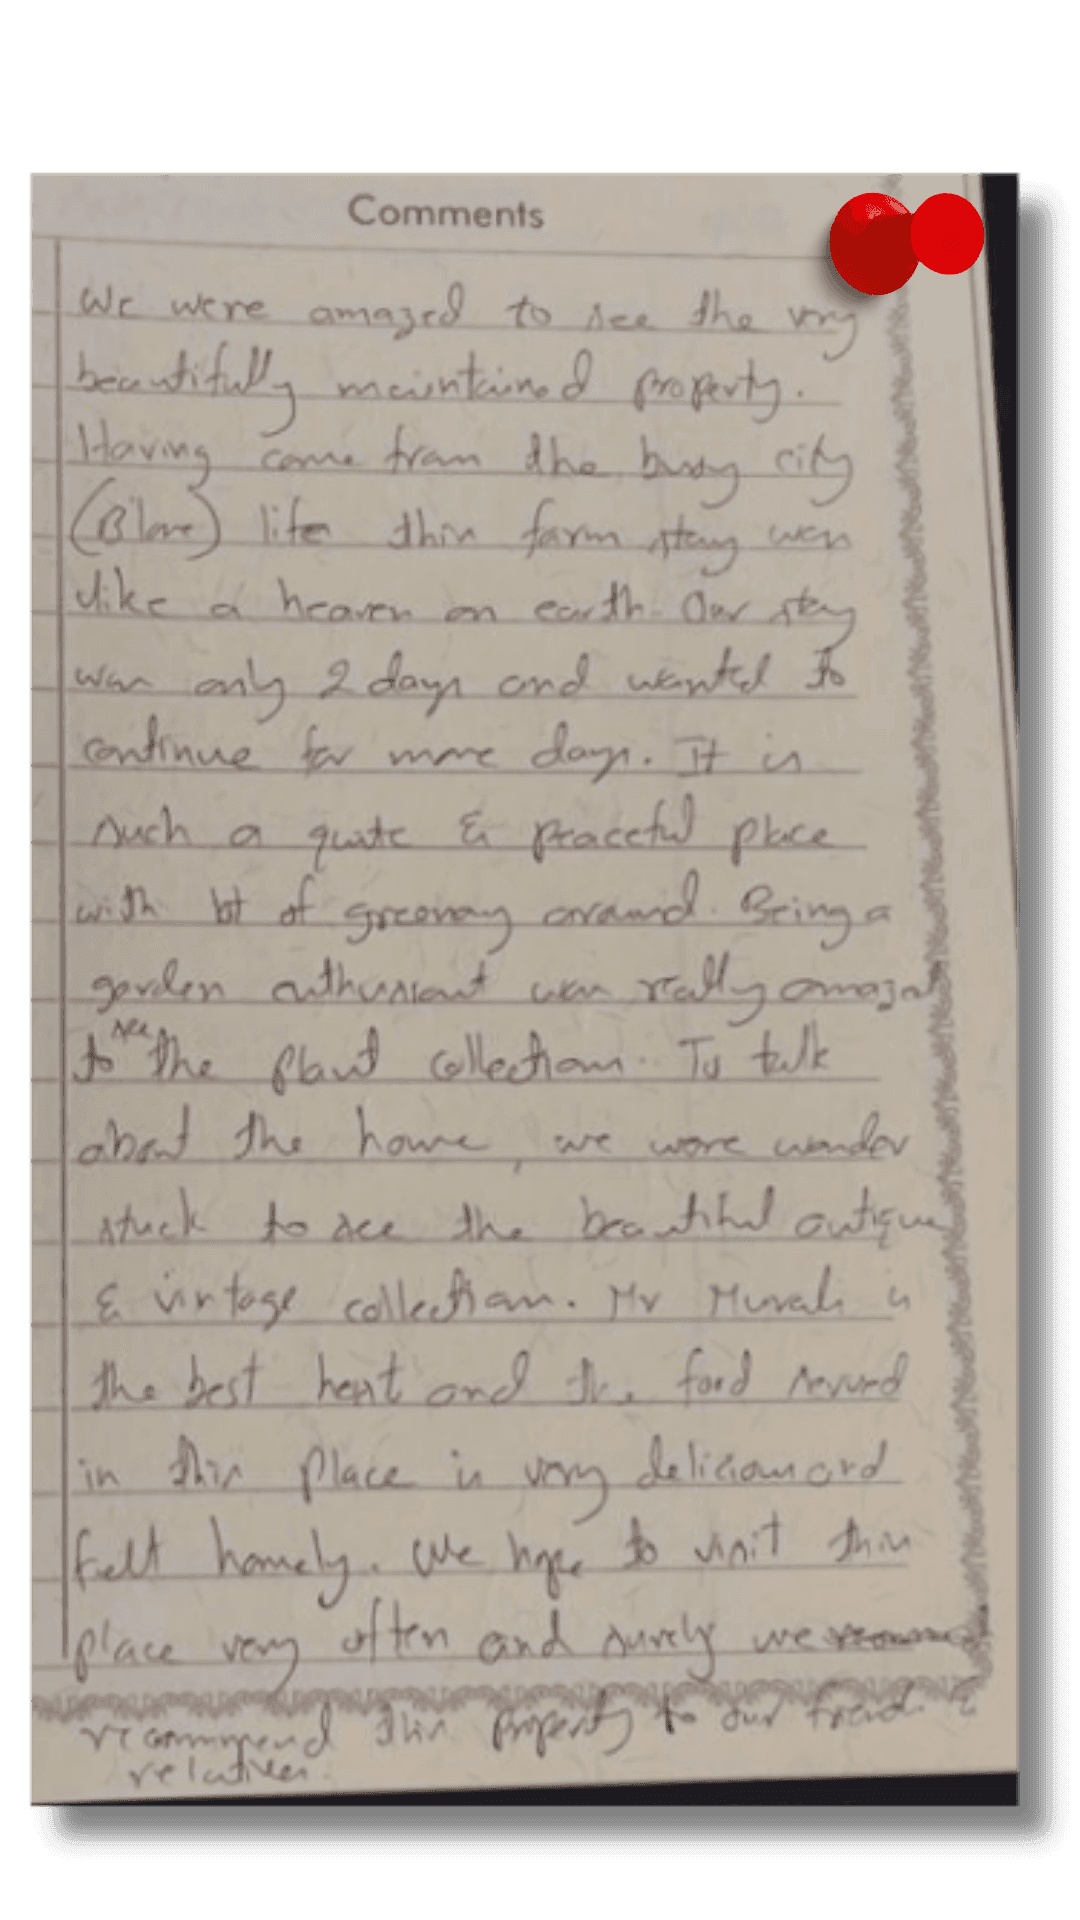 Comments
We were amazed to see the very
beautifully maintained property.
Having come from the busy city
(B'lore) life this farm stay was
like a heaven on earth. Our stay
was only 2 days and wanted to
continue for more days. It is
such a quite & peaceful place
with lot of greenery around. Being a
garden enthusiast was really amazed
to see the plant collection. To talk
about the home, we were wonder
stuck to see the beautiful antique
& vintage collection. Mr Murali is
the best host and the food served
in this place is very delicious and
felt homely. We hope to visit this
place very often and surely we
recommend this property to our friends &
relatives.